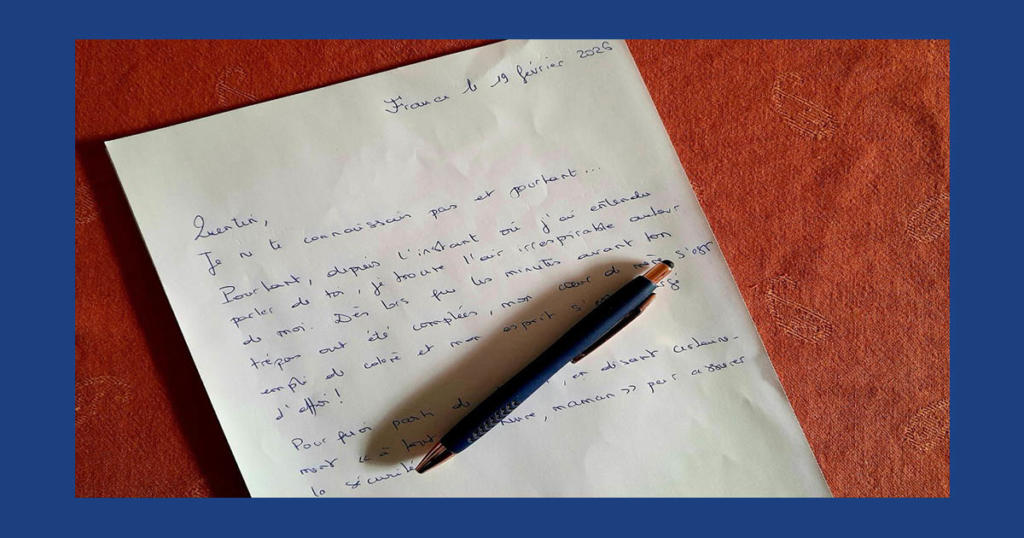 France le 19 février 2026
Quentin,
Je ne te connaissais pas et pourtant...
Pourtant, depuis l'instant où j'ai entendu
parler de toi, je trouve l'air irrespirable autour
de moi. Dès lors que les minutes avant ton
trépas ont été comptées, mon cœur de mère s'est
empli de colère et mon esprit s'est
d'effroi !
Pour fuir parti de , en disant certaine-
ment « à , maman » pour assurer
la sécurité